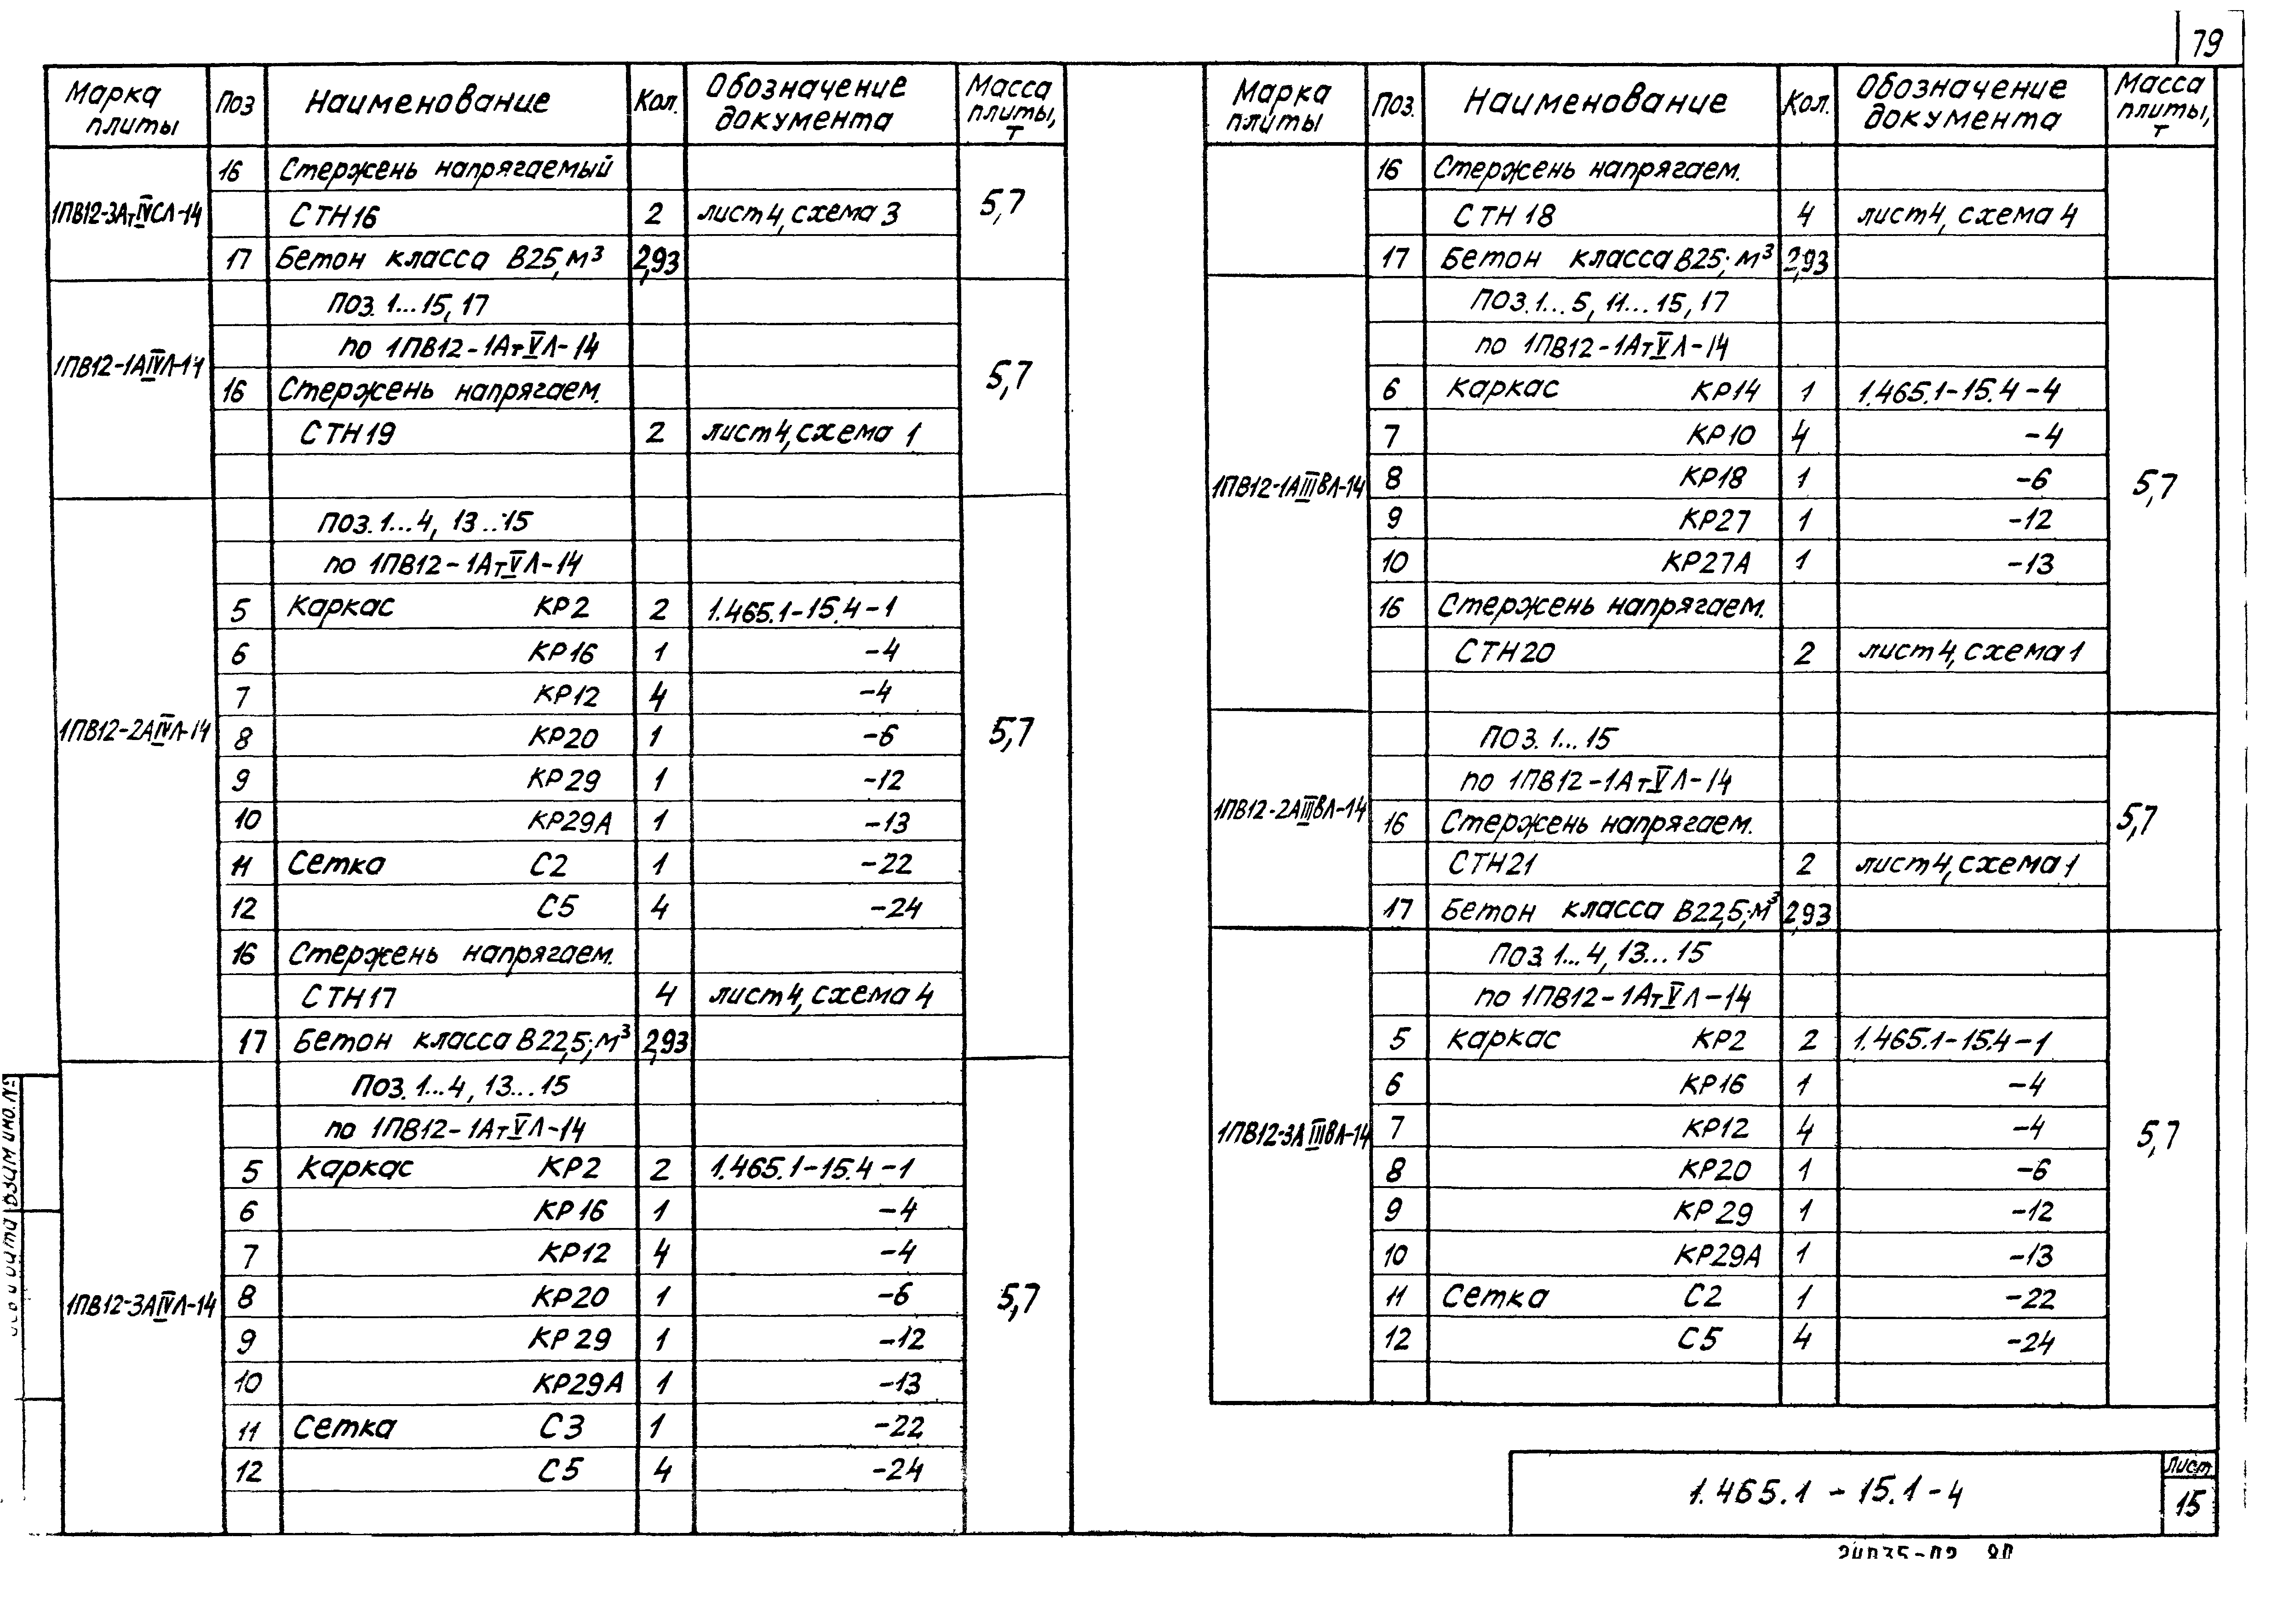 79
Марка плиты Поз Наименование Кол. Обозначение документа Масса плиты, т
16 Стержень напрягаемый
1ПВ12-3АтIVСЛ-14 СТН16 2 лист 4, схема 3 5,7
17 Бетон класса В25, м³ 2,93
Поз. 1...15, 17
1ПВ12-1АIVЛ-14 по 1ПВ12-1АтVЛ-14 5,7
16 Стержень напрягаем.
СТН19 2 лист 4, схема 1
Поз. 1...4, 13...15
по 1ПВ12-1АтVЛ-14
5 Каркас КР2 2 1.465.1-15.4-1
6 КР16 1 -4
7 КР12 4 -4
1ПВ12-2АIVЛ-14 8 КР20 1 -6 5,7
9 КР29 1 -12
10 КР29А 1 -13
11 Сетка С2 1 -22
12 С5 4 -24
16 Стержень напрягаем.
СТН17 4 лист 4, схема 4
17 Бетон класса В22,5; м³ 2,93
Поз. 1...4, 13...15
по 1ПВ12-1АтVЛ-14
5 Каркас КР2 2 1.465.1-15.4-1
6 КР16 1 -4
7 КР12 4 -4
1ПВ12-3АIVЛ-14 8 КР20 1 -6 5,7
9 КР29 1 -12
10 КР29А 1 -13
11 Сетка С3 1 -22
12 С5 4 -24
Марка плиты Поз. Наименование Кол. Обозначение документа Масса плиты, т
16 Стержень напрягаем.
СТН18 4 лист 4, схема 4
17 Бетон класса В25; м³ 2,93
Поз. 1...5, 11...15, 17
по 1ПВ12-1АтVЛ-14
6 Каркас КР14 1 1.465.1-15.4-4
7 КР10 4 -4
1ПВ12-1АIIIвЛ-14 8 КР18 1 -6 5,7
9 КР27 1 -12
10 КР27А 1 -13
16 Стержень напрягаем.
СТН20 2 лист 4, схема 1
Поз. 1...15
по 1ПВ12-1АтVЛ-14
1ПВ12-2АIIIвЛ-14 16 Стержень напрягаем. 5,7
СТН21 2 лист 4, схема 1
17 Бетон класса В22,5; м³ 2,93
Поз 1...4, 13...15
по 1ПВ12-1АтVЛ-14
5 Каркас КР2 2 1.465.1-15.4-1
6 КР16 1 -4
1ПВ12-3АIIIвЛ-14 7 КР12 4 -4 5,7
8 КР20 1 -6
9 КР29 1 -12
10 КР29А 1 -13
11 Сетка С2 1 -22
12 С5 4 -24
1.465.1-15.1-4
Лист
15